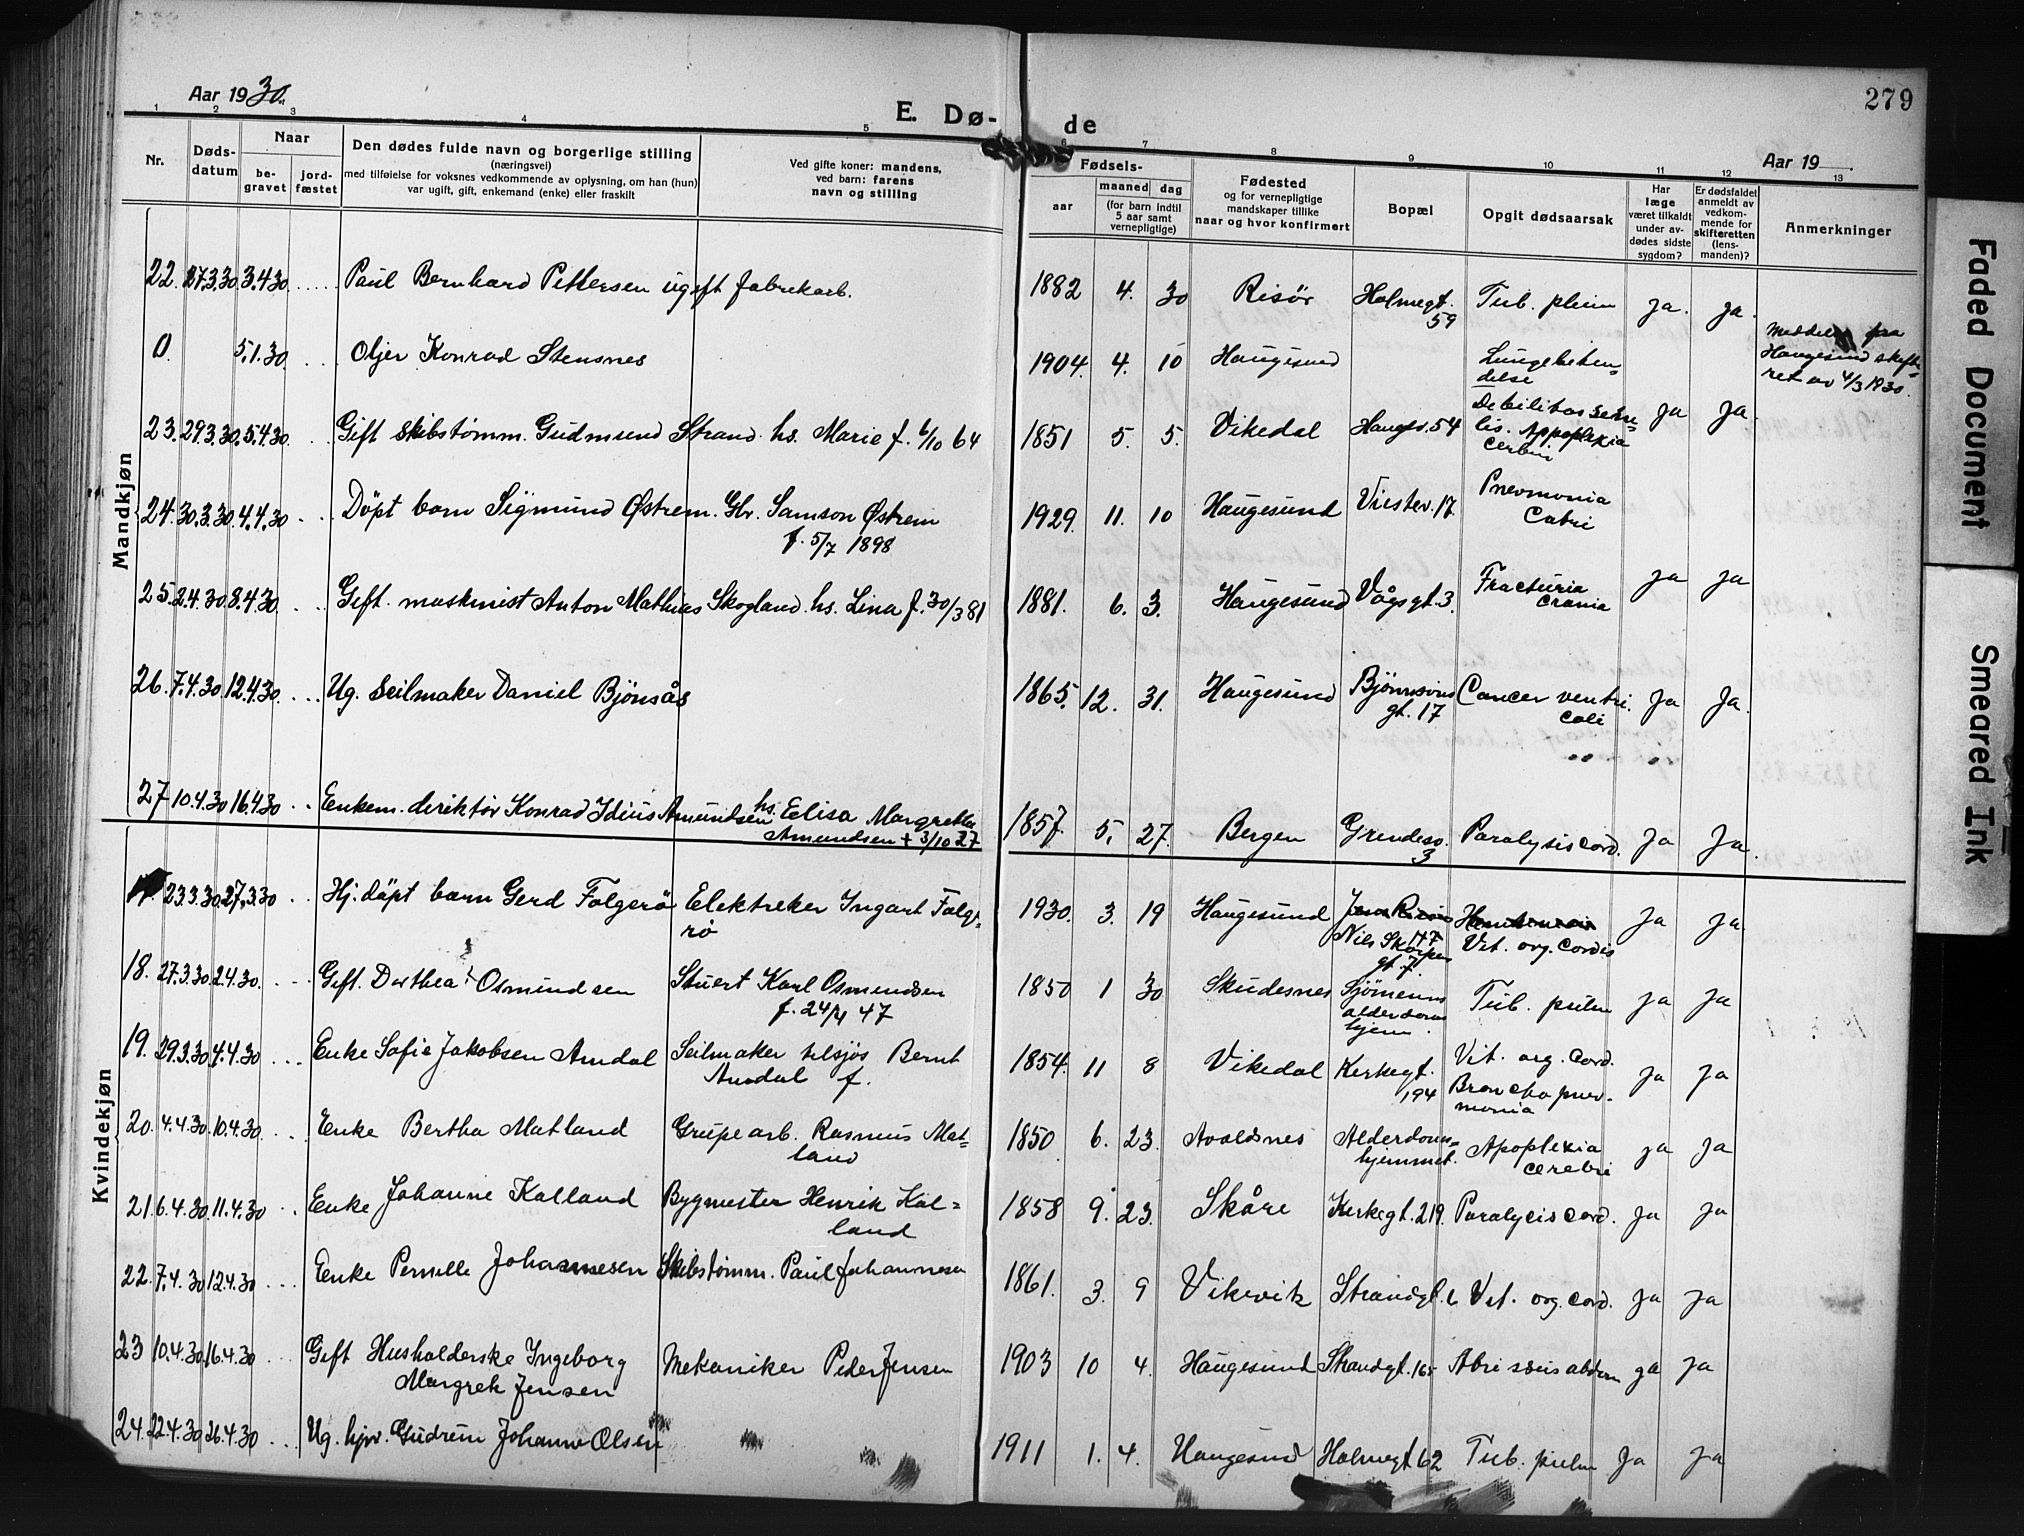 279
Aar 1930.
E. Dø-
de
Aar 19
1 2 3 4 5 6 7 8 9 10 11 12 13
Nr.
Døds-
datum
Naar
be-
gravet
jord-
fæstet
Den dødes fulde navn og borgerlige stilling
(næringsvei)
med tilføielse for voksnes vedkommende av oplysning, om han (hun)
var ugift, gift, enkemand (enke) eller fraskilt
Ved gifte koner: mandens,
ved barn: farens
navn og stilling
Fødsels-
aar
maaned dag
(for barn indtil
5 aar samt
vernepligtige)
Fødested
og for vernepligtige
mandskaper tillike
naar og hvor konfirmert
Bopæl
Opgit dødsaarsak
Har
læge
været tilkaldt
under av-
dødes sidste
sygdom?
Er dødsfaldet
anmeldt av
vedkom-
mende for
skifteretten
(lens-
manden)?
Anmerkninger
Mandkjøn
22. 27.3.30 3.4.30 Paul Bernhard Pettersen ugift fabrekarb. 1882 4. 30 Risör Holmegt. 59 Tub. pulm ja. ja.
0. 5.1.30. Oljer Konrad Stensnes 1904. 4. 10 Haugesund Lungebeten=
delse
fra
Haugesund skifte=
ret av 4/3 1930.
23. 29.3.30. 5.4.30. Gift skibstømm. Gudmund Strand. hs. Marie f. 6/10 64 1851 5. 5. Vikedal Haugev. 54 Debilitas seni=
lis. Appoplexia
Cerbri ja ja.
24. 30.3.30. 4.4.30 Döpt barn Sigmund Østrem. Gbr. Samson Østrem
f. 5/7 1898 1929. 11. 10 Haugesund Viestev. 17. Pnevmonia
Catri
25. 2.4.30 8.4.30. Gift. maskinist Anton Mathias Skogland. hs. Lina f. 30/3 81 1881. 6. 3. Haugesund Vågsgt. 3. Fracturia
Crania ja ja
26. 7.4.30. 12.4.30. Ug. Seilmaker Daniel Bjönsås 1865. 12. 31. Haugesund Bjönnsöns
gt. 17 Cancer ventri.
coli ja ja.
27 10.4.30 16.4.30 Enkem. direktör Konrad Idius Amundsen hs. Elisa Margrethe
Amundsen + 3/10 27 1857. 5. 27. Bergen 3 Paralysis cord. ja ja.
Kvindekjøn
23.3.30. 27.3.30 Hj. döpt barn Gerd Folgerö Elektreker Ingart Folge=
rö 1930. 3. 19 Haugesund Vit. org. Cordis ja ja.
18. 27.3.30. 2.4.30. Gift. Dorthea Osmundsen Stuert Karl Osmundsen
f. 24/4 47 1850 1 30 Skudesnes Sjömenns
alderdoms
hjem. Tub. pulm ja ja
19. 29.3.30. 4.4.30 Enke Sofie Jakobsen Amdal Seilmaker tilsjös Bernt
Amdal f. 1854. 11 8 Vikedal Kirkegt.
194 Vit. org. Cord.
Broncho pnev.
monia ja ja
20. 4.4.30. 10.4.30. Enke Bertha Matland Grubearb. Rasmus Mat=
land 1850 6. 23. Avaldsnes Alderdoms=
hjemmet. Apoplexia
Cerebri ja ja
21. 6.4.30. 11.4.30 Enke Johanne Kalland Bygmester Henrik Kal=
land 1858 9. 23. Skåre Kirkegt. 219. Paralysis cord. ja ja
22. 7.4.30 12.4.30 Enke Pernille Johannesen Skibstömm. Paul Johannesen 1861. 3. 9 Vikevik Strandgt. 6 Vit. org. cord. ja ja
23 10.4.30. 16.4.30 Gift Husholderske Ingeborg
Margrete Jensen Mekaniker Peder Jensen 1903 10 4. Haugesund ja ja
24. 22.4.30 26.4.30 Ug. hjv. Gudrun Johanne Olsen 1911 1. 4. Haugesund Holmegt. 62 Tub. pulm ja ja
Faded Document
Smeared Ink